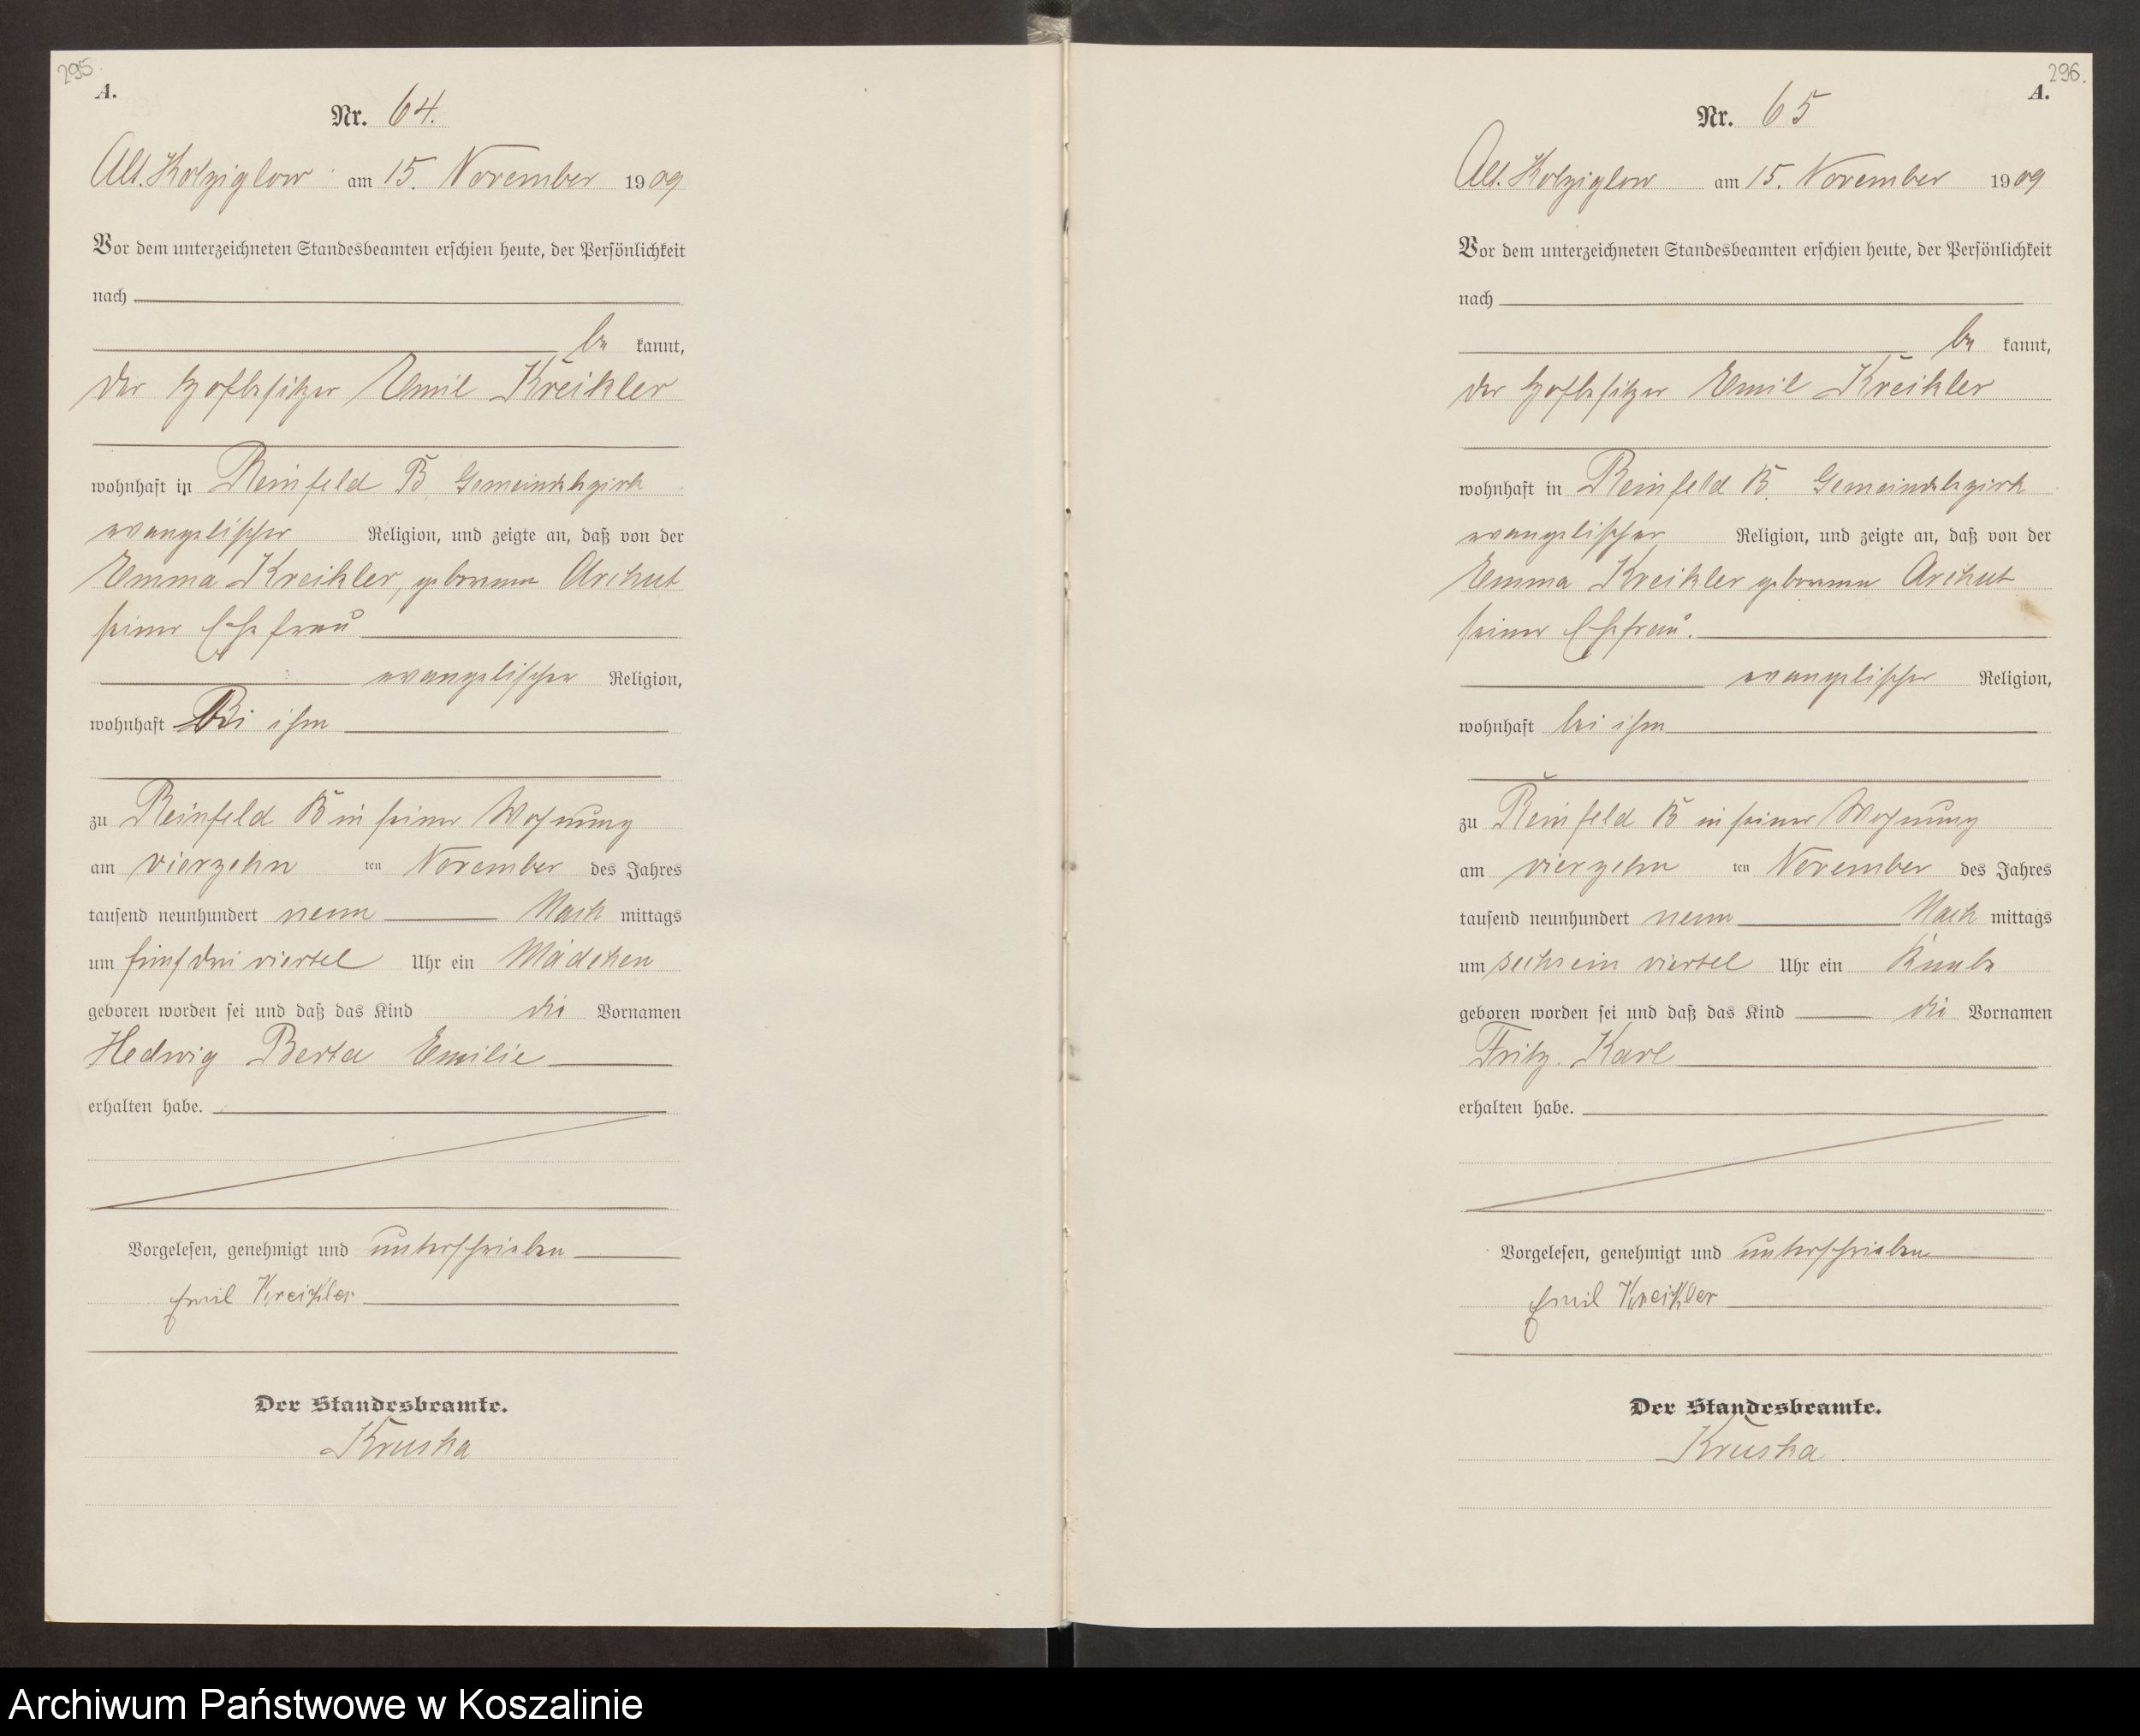 295.
A.
Nr. 64.
Alt. Kolziglow am 15. November 1909
Vor dem unterzeichneten Standesbeamten erschien heute, der Persönlichkeit
nach
be kannt,
der Hofbesitzer Emil Kreikler
wohnhaft in Reinfeld B. Gemeindebezirk
evangelischer Religion, und zeigte an, daß von der
Emma Kreikler, geborenen Archut
seiner Ehefrau
evangelischer Religion,
wohnhaft bei ihm
zu Reinfeld B in seiner Wohnung
am vierzehn ten November des Jahres
tausend neunhundert neun Nach mittags
um fünf drei viertel Uhr ein Mädchen
geboren worden sei und daß das Kind die Vornamen
Hedwig Berta Emilie
erhalten habe.
Vorgelesen, genehmigt und unterschrieben
Emil Kreikler
Der Standesbeamte.
Kruska
296.
A.
Nr. 65
Alt. Kolziglow am 15. November 1909
Vor dem unterzeichneten Standesbeamten erschien heute, der Persönlichkeit
nach
be kannt,
der Hofbesitzer Emil Kreikler
wohnhaft in Reinfeld B. Gemeindebezirk
evangelischer Religion, und zeigte an, daß von der
Emma Kreikler geborenen Archut
seiner Ehefrau.
evangelischer Religion,
wohnhaft bei ihm
zu Reinfeld B in seiner Wohnung
am vierzehn ten November des Jahres
tausend neunhundert neun Nach mittags
um sechs ein viertel Uhr ein Knabe
geboren worden sei und daß das Kind die Vornamen
Fritz Karl
erhalten habe.
Vorgelesen, genehmigt und unterschrieben
Emil Kreikler
Der Standesbeamte.
Kruska
Archiwum Państwowe w Koszalinie